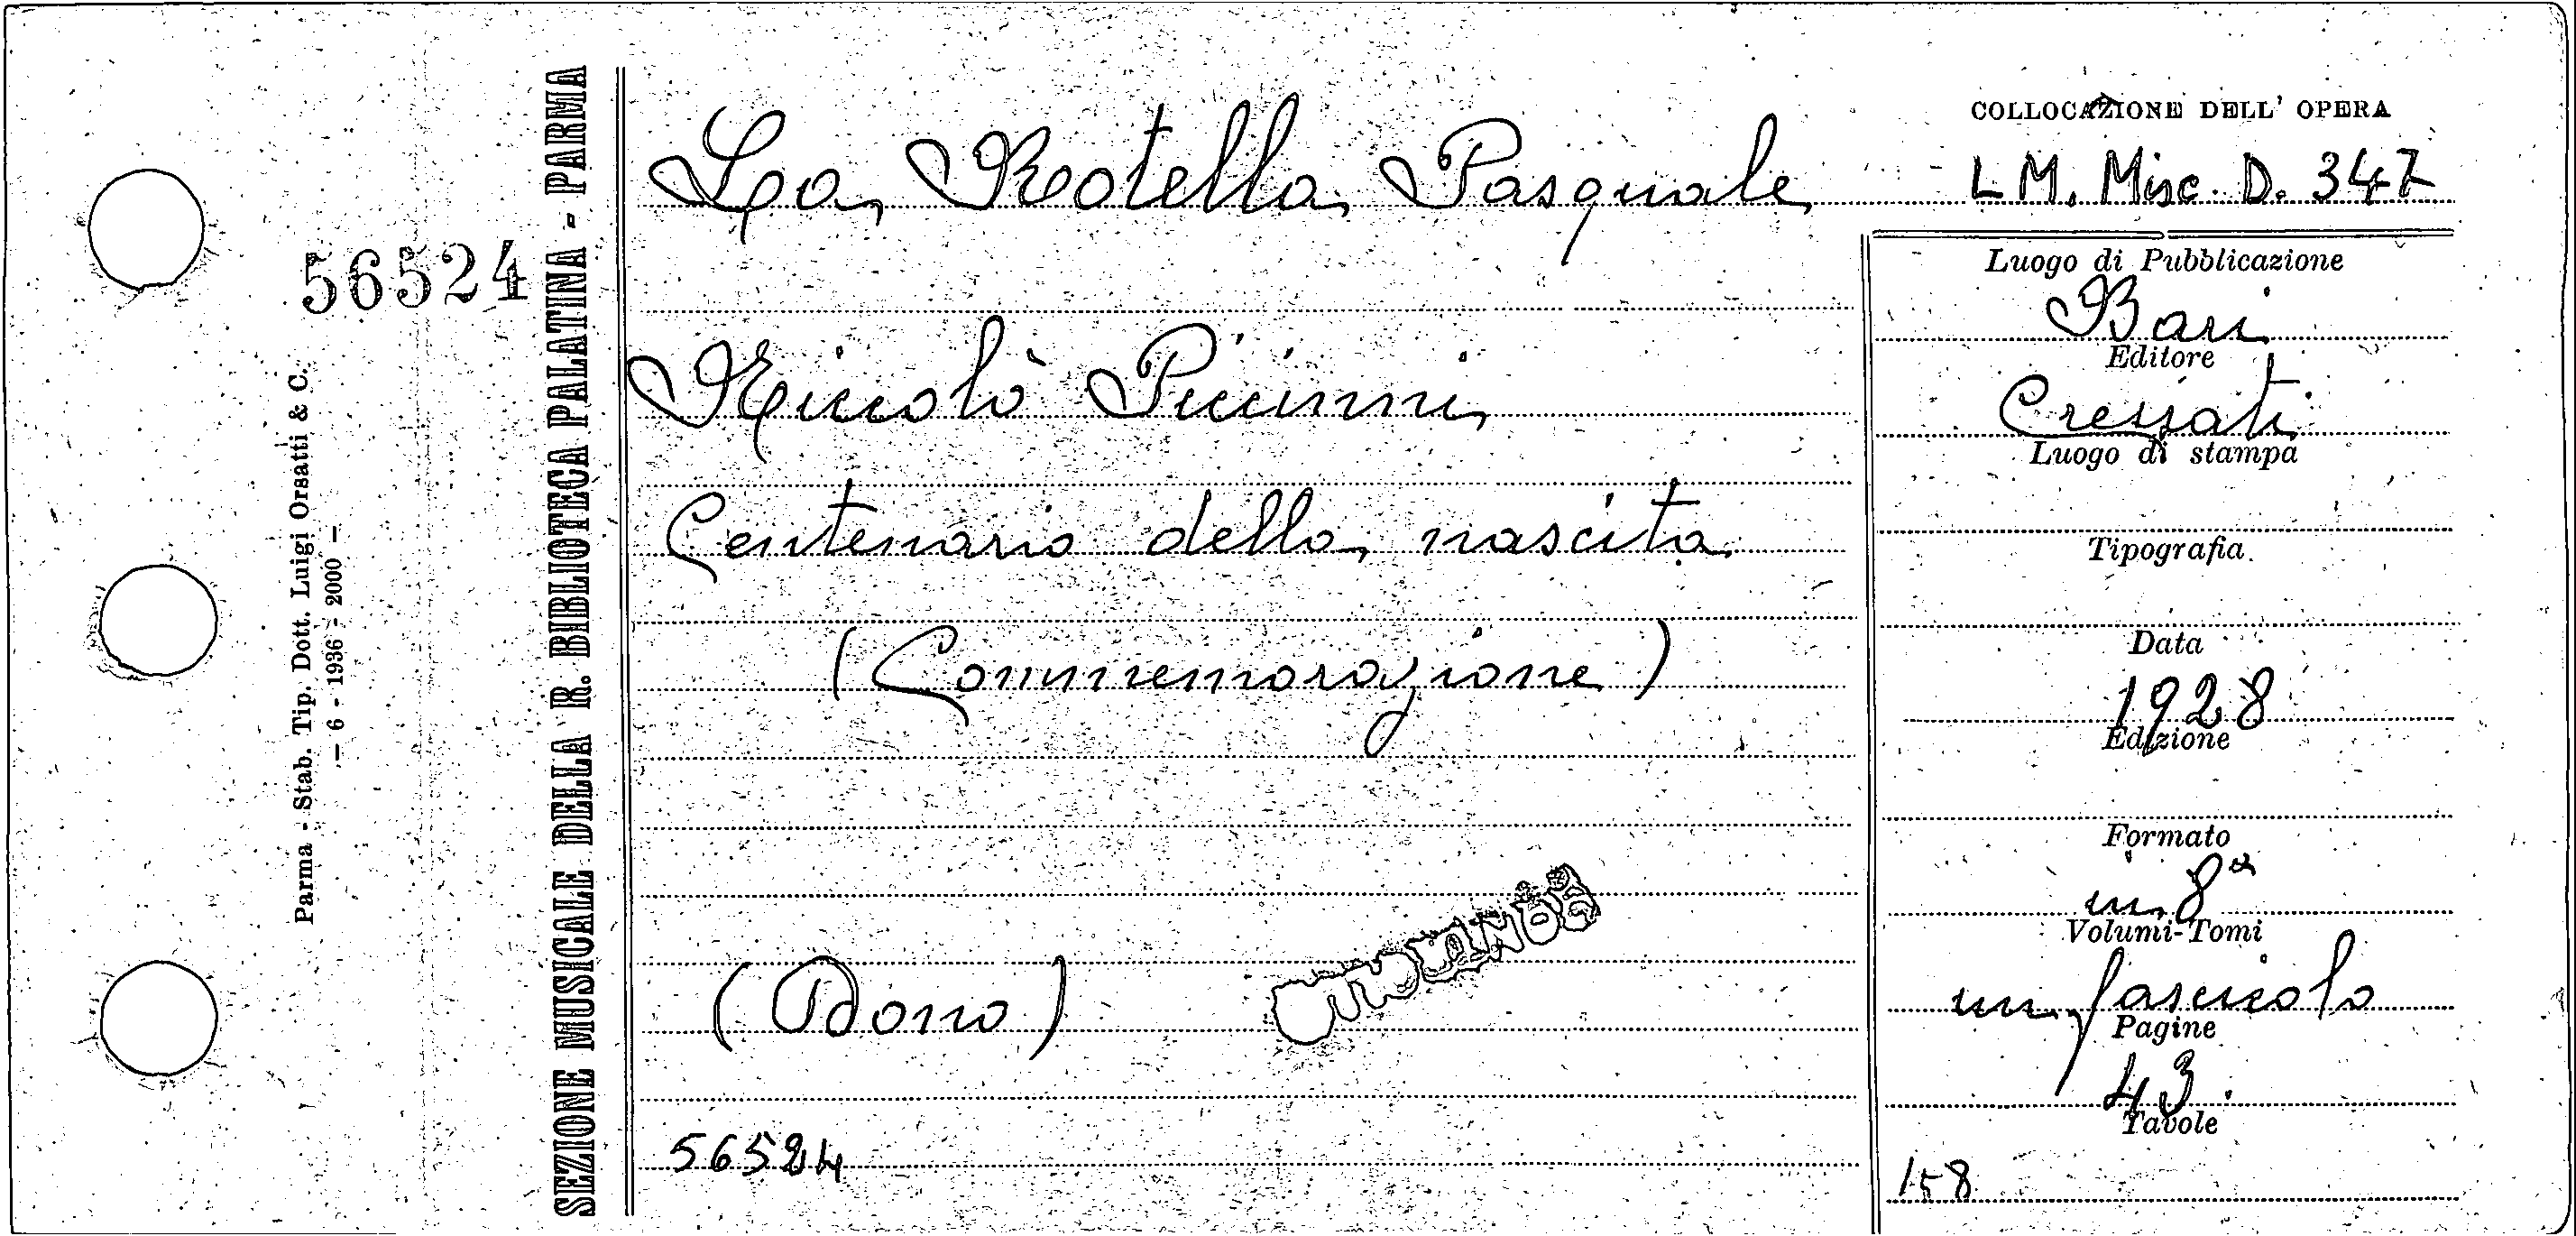 SEZIONE MUSICALE DELLA R. BIBLIOTECA PALATINA - PARMA
Parma - Stab. Tip. Dott. Luigi Orsatti & C.
— 6 - 1936 - 2000 —
56524
La Rotella Pasquale
Niccolò Piccinni
Centenario della nascita
(Commemorazione)
(Dono)
56524
COLLOCAZIONE DELL' OPERA
LM. Misc. D. 347
Luogo di Pubblicazione
Bari
Editore
Cressati
Luogo di stampa
Tipografia
Data
1928
Edizione
Formato
in 8°
Volumi-Tomi
un fascicolo
Pagine
43.
Tavole
158